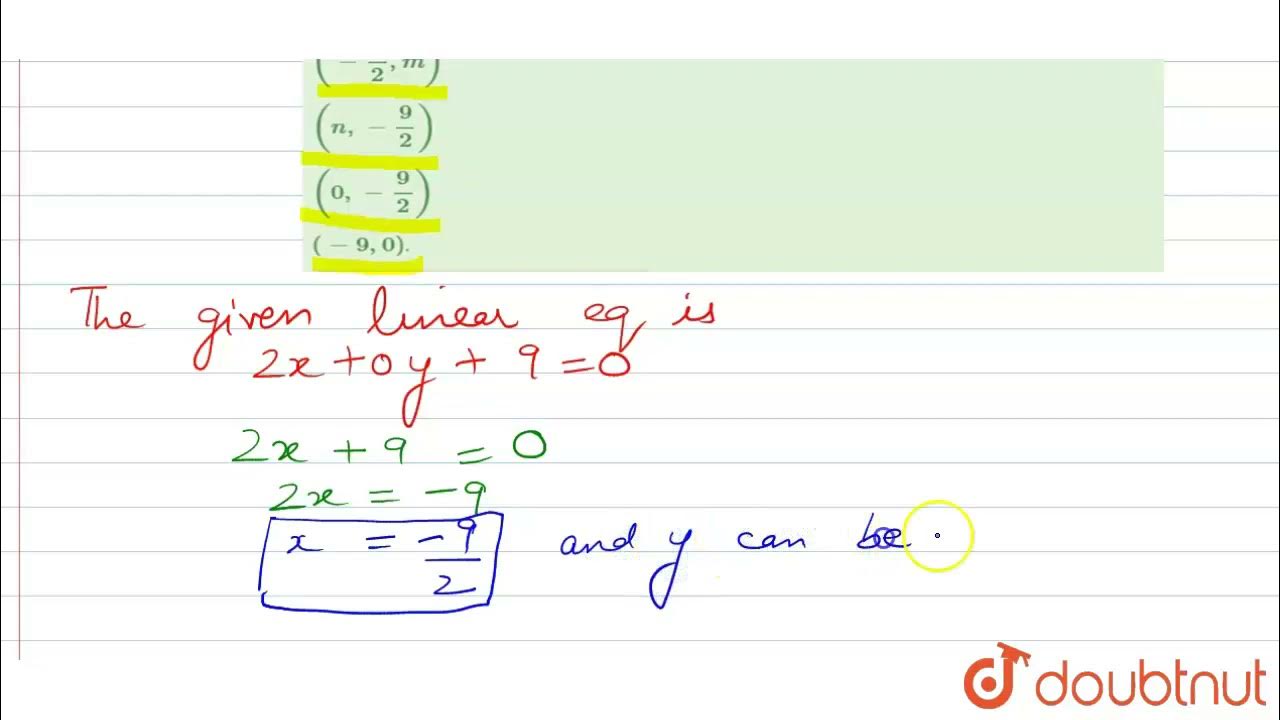 (-9/2, m)
(n, -9/2)
(0, -9/2)
(-9, 0).
The given linear eq is
2x + 0y + 9 = 0
2x + 9 = 0
2x = -9
x = -9/2 and y can be
doubtnut